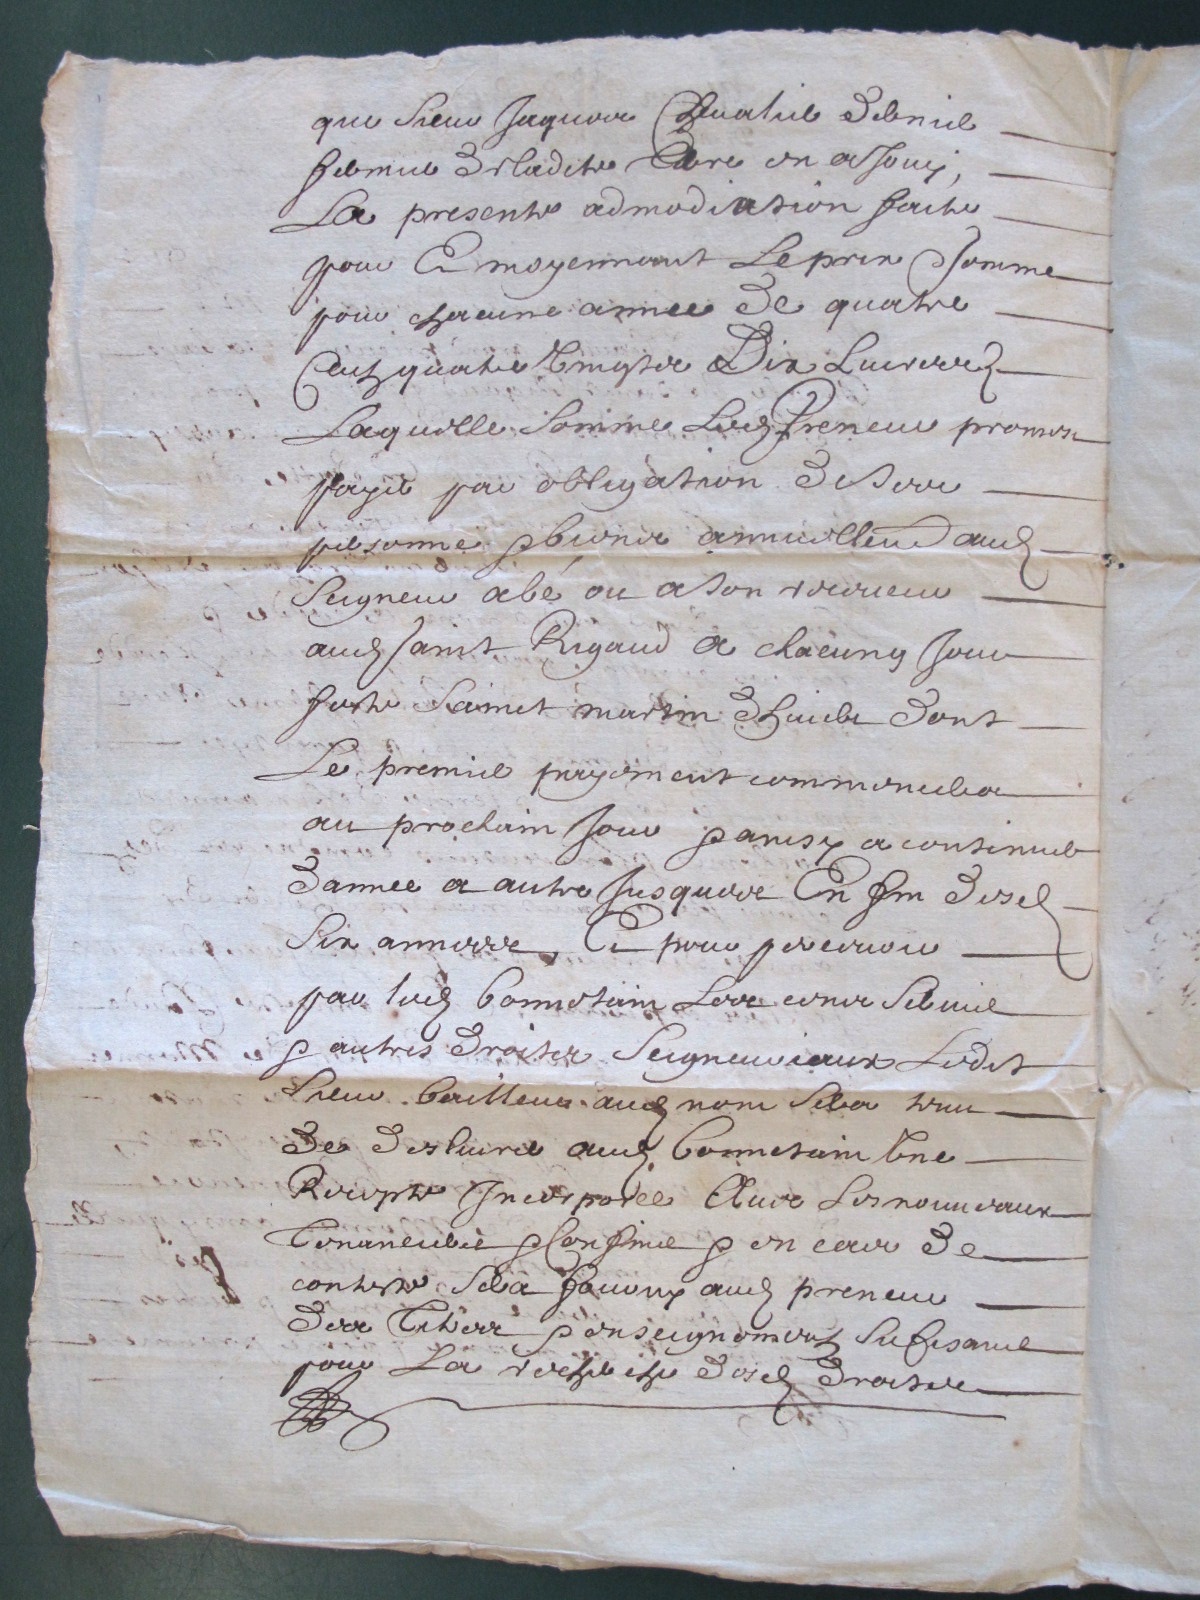 que Sieur Jaques dernier
fermier de ladite en a Jouy,
La presente admodiation faite
pour Et moyennant Le prix & somme
pour chacune annee de quatre
Cent quatre vingts Dix Livres
Laquelle somme Led Preneur promet
payer par obligation de
personne & biens annuellement aud
Seigneur abé ou a son receveur
aud saint Rigaud a chacung Jour
feste Sainct martin dhiver dont
Le premier payement commencera
au prochain Jour & ainsy a continuer
dannee a autre Jusques En fin desd
Six annees, Et pour percevoir
par led bonnetain Les cens servis
& autres droits Seigneuriaux Ledit
Sieur bailleur aud nom sera tenu
de deslivrer aud bonnetain Une
Recepte Incorporee Avec Les nouveaux
Tenanciers & Confins & en cas de
conteste sera fourny aud preneur
des Titres & enseignements sufisants
pour La desd droits